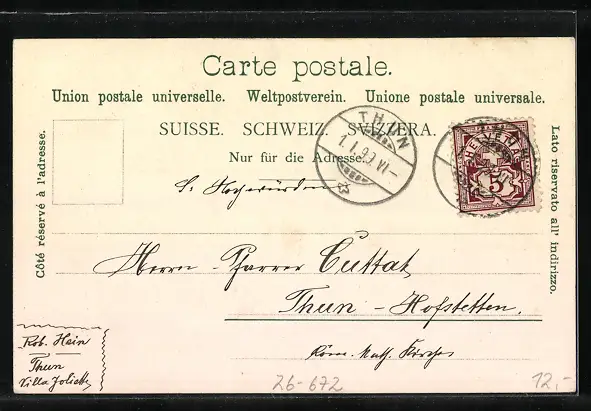 Carte postale.
Union postale universelle. Weltpostverein. Unione postale universale.
SUISSE. SCHWEIZ. SVIZZERA.
Nur für die Adresse.
Côté réservé à l'adresse.
Lato riservato all' indirizzo.
THUN
1.I.99.VI-
HELVETIA
5
S. Hochwürden
Herrn - Pfarrer Cuttat
Thun - Hofstetten.
Röm. Kath. Kirche
Rob. Hein
Thun
Villa Joliette
26-672
12,-